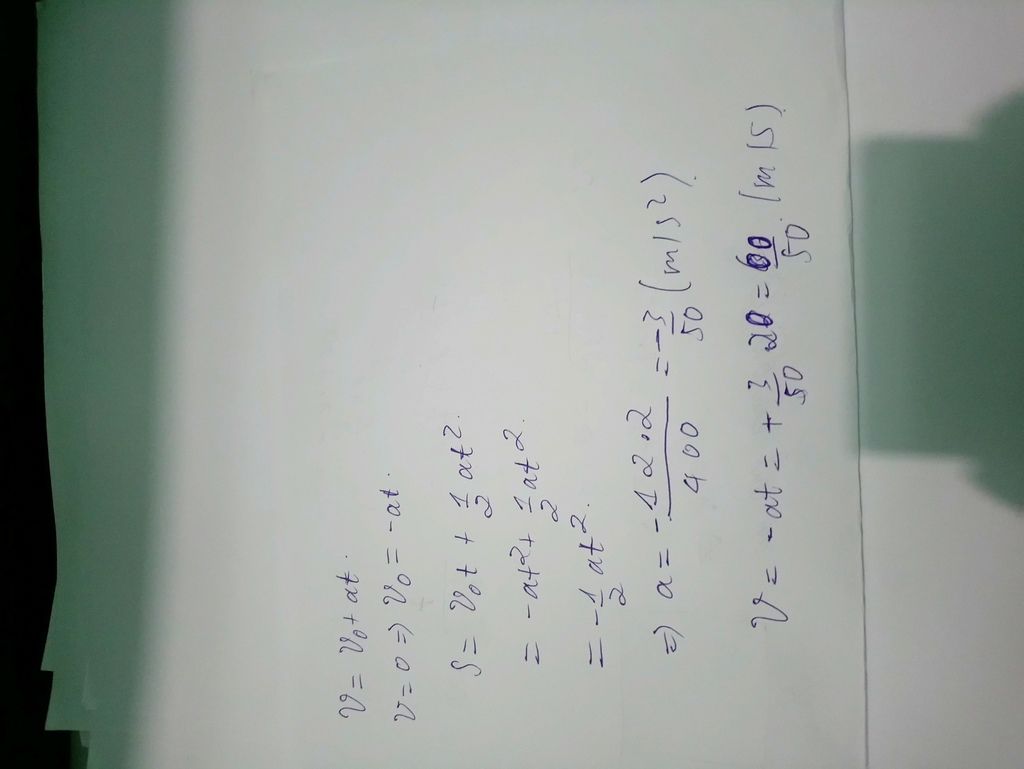 v = v₀ + at.
v = 0 => v₀ = -at.
S = v₀t + 1/2 at².
= -at² + 1/2 at².
= -1/2 at².
=> a = -12.2/400 = -3/50 (m/s²).
v = -at = + 3/50 . 20 = 60/50 . (m/s).